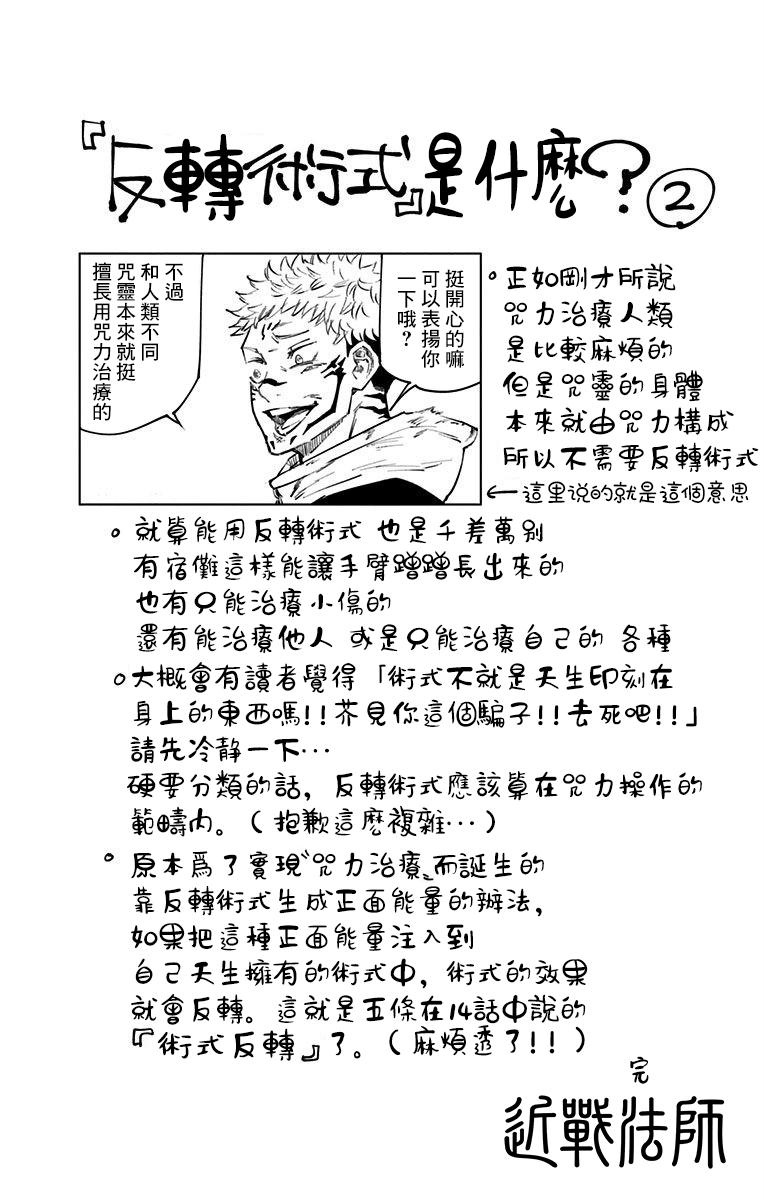 『反轉術式』是什麽？②
挺開心的嘛
可以表揚你
一下哦？
不過
和人類不同
咒靈本來就挺
擅長用咒力治療的
。正如剛才所說
咒力治療人類
是比較麻煩的
但是咒靈的身體
本來就由咒力構成
所以不需要反轉術式
←這里说的就是這個意思
。就算能用反轉術式 也是千差萬别
有宿儺這樣能讓手臂蹭蹭長出來的
也有只能治療小傷的
還有能治療他人 或是只能治療自己的 各種
。大概會有讀者覺得「術式不就是天生印刻在
身上的東西嗎!!芥見你這個騙子!!去死吧!!」
請先冷静一下…
硬要分類的話，反轉術式應該算在咒力操作的
範疇内。（抱歉這麽複雜…）
。原本爲了實現〝咒力治療〟而誕生的
靠反轉術式生成正面能量的辦法，
如果把這種正面能量注入到
自己天生擁有的術式中，術式的效果
就會反轉。這就是五條在14話中說的
『術式反轉』了。（麻煩透了!!）
完
近戰法師